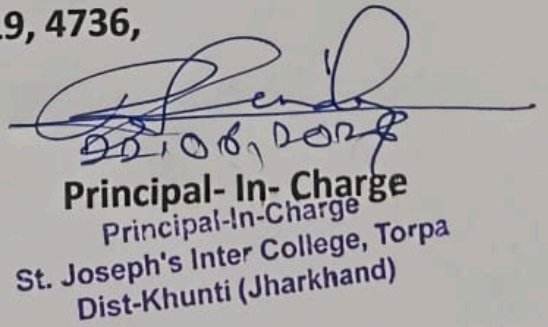 .9, 4736,
22.06,2024
Principal- In- Charge
Principal-In-Charge
St. Joseph's Inter College, Torpa
Dist-Khunti (Jharkhand)